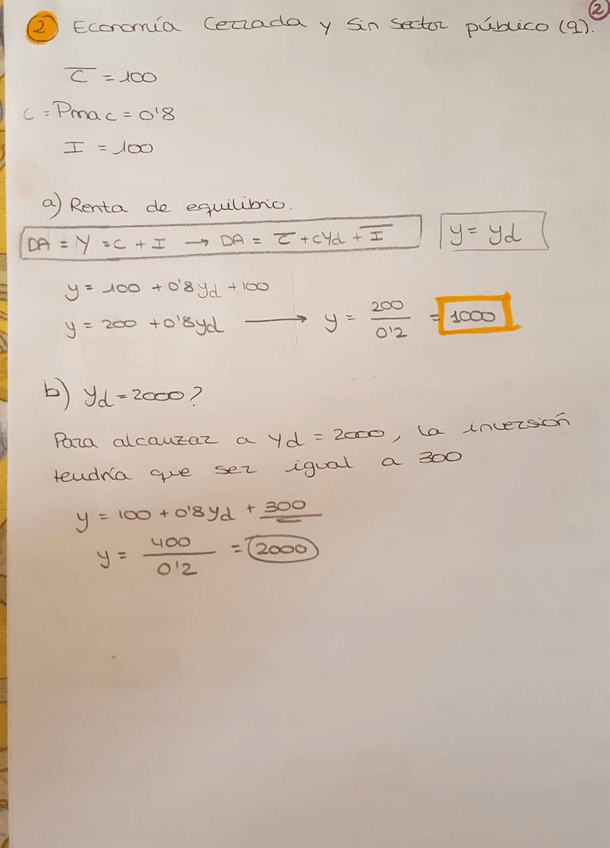 2
2 Economía Cerrada y Sin Sector público (9).
C̅ = 100
c = Pmac = 0'8
I = 100
a) Renta de equilibrio.
DA = Y = C + I → DA = C̅ + cYd + I̅ y = yd
y = 100 + 0'8yd + 100
y = 200 + 0'8yd → y = 200 / 0'2 = 1000
b) yd = 2000?
Para alcanzar a yd = 2000, la inversión
tendría que ser igual a 300
y = 100 + 0'8yd + 300
y = 400 / 0'2 = 2000